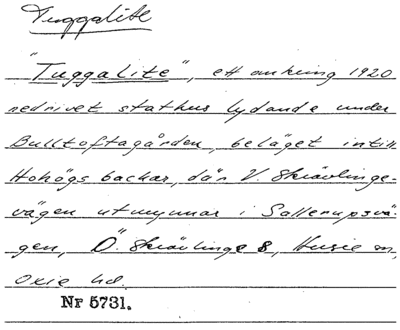 Tuggalite
"Tuggalite", ett omkring 1920
nedrivet stathus lydande under
Bulltoftagården, beläget intill
Hohögs backar, där V. Skrävlinge-
vägen utmynnar i Sallerupsvä-
gen, Ö. Skrävlinge s, Husie sn,
Oxie hd.
Nr 5731.